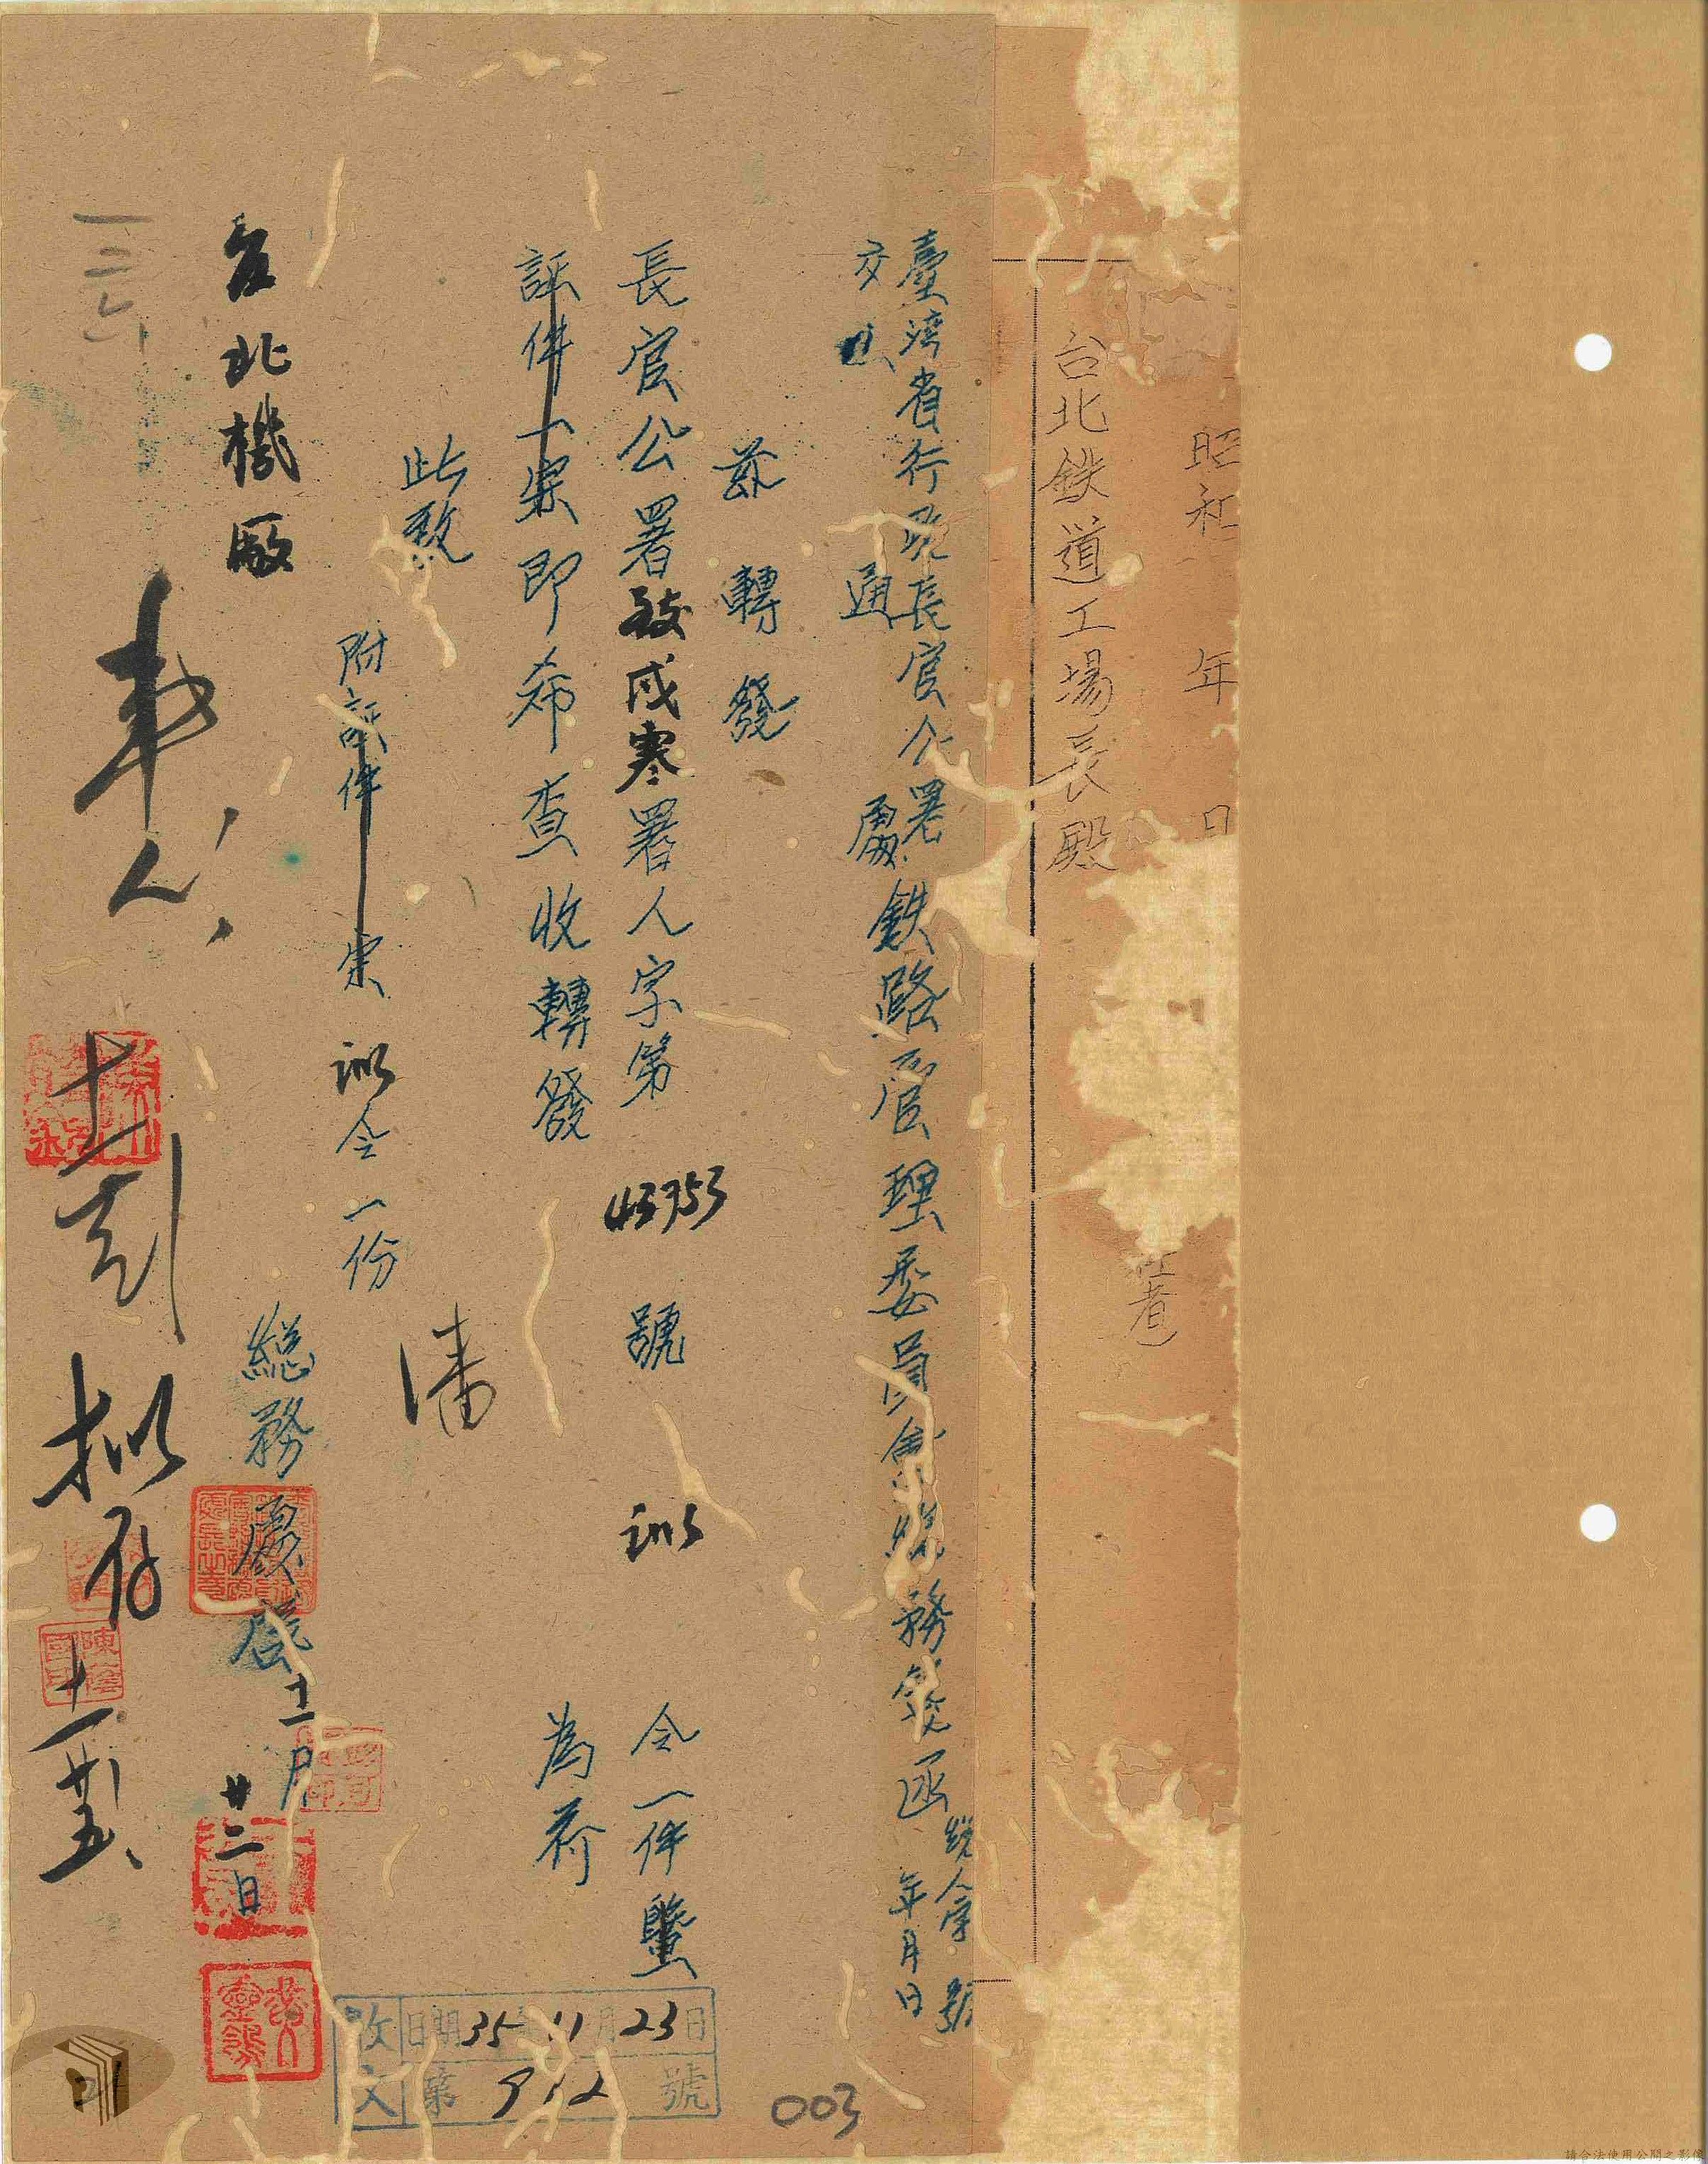 昭和 年 日
台北鉄道工場長殿
者)
臺湾省行政長官公署鉄路管理委員會總務處函 總人字 號
交通處 年 月 日
茲轉發
長官公署致戌寒署人字第 45753 號訓令一件暨
証件一宗即希查收轉發 為荷
此致
附証件 宗 訓令一份
潘
台北機廠
總務處啟 十一月廿二日
拟存
陳
一二六
收文 日期 35 11月23日
第 號
003
請合法使用公開之影像